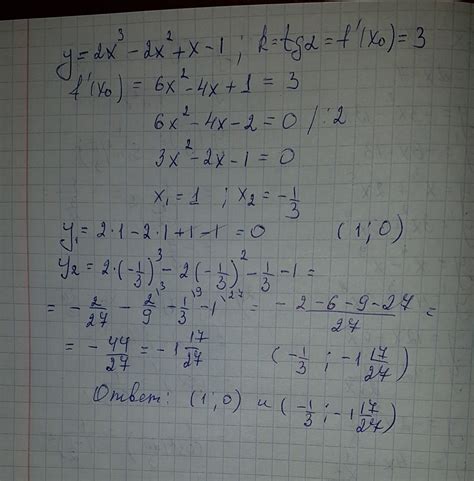 y = 2x³ - 2x² + x - 1 ; k = tg2 = f'(x₀) = 3
f'(x₀) = 6x² - 4x + 1 = 3
6x² - 4x - 2 = 0 / :2
3x² - 2x - 1 = 0
x₁ = 1 ; x₂ = -1/3
y₁ = 2·1 - 2·1 + 1 - 1 = 0 (1; 0)
y₂ = 2·(-1/3)³ - 2(-1/3)² - 1/3 - 1 =
= -2/27 - 2/9\3 - 1/3\9 - 1\27 = -2-6-9-27/27 =
= -44/27 = -1 17/27 (-1/3 ; -1 17/27)
Ответ: (1; 0) и (-1/3 ; -1 17/27)